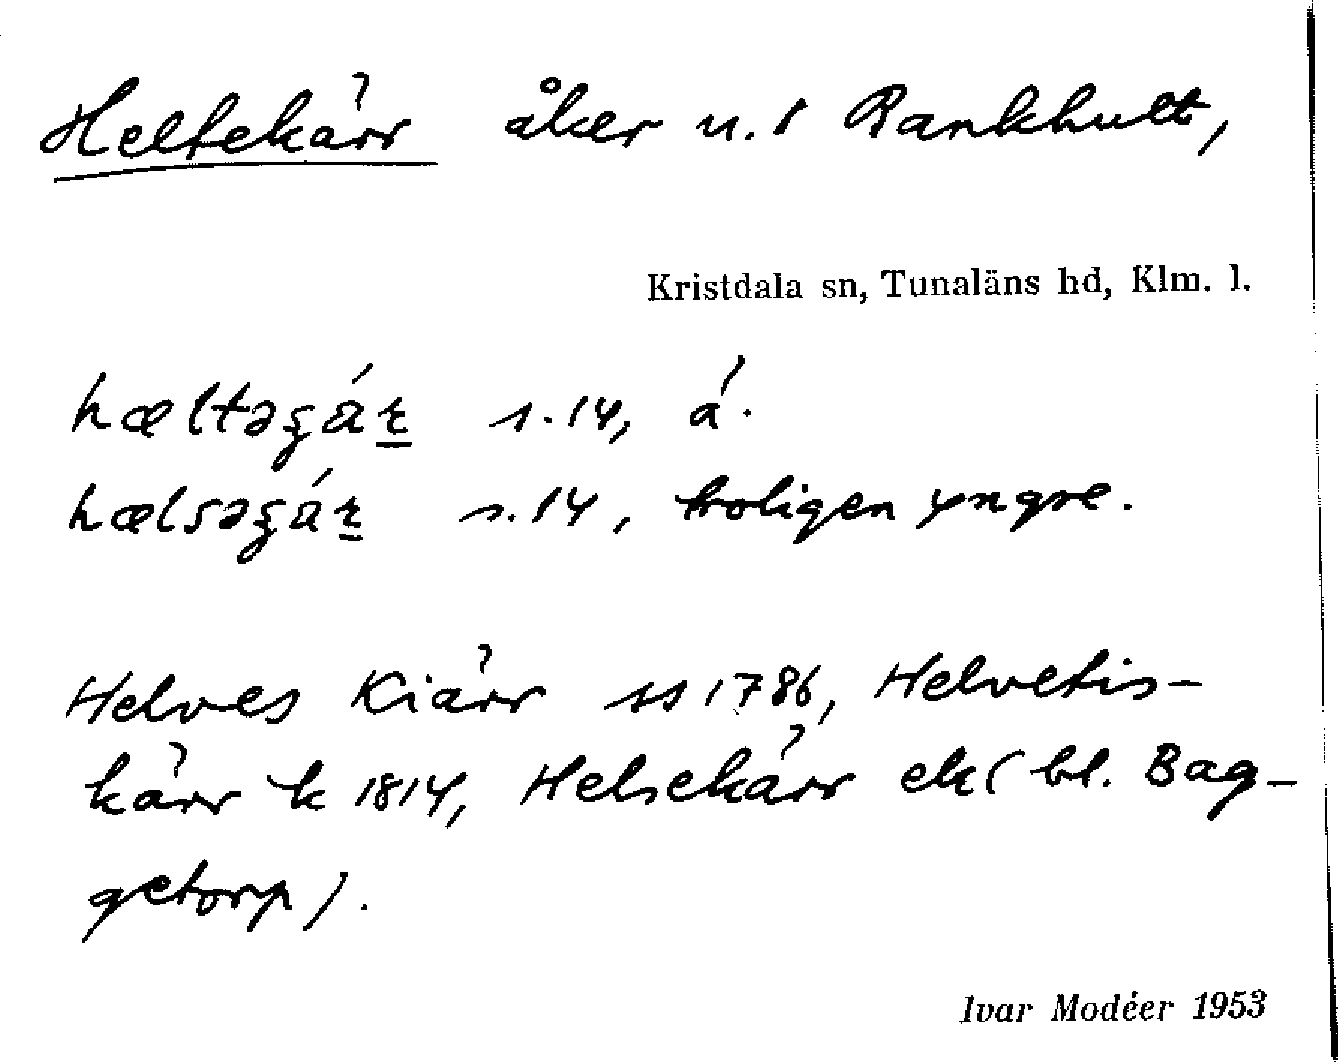 Heltekärr åker u. s Rankhult,
Kristdala sn, Tunaläns hd, Klm. l.
hæltəgár s. 14, á.
hælsəgár s. 14, troligen yngre.
Helves Kiärr ss 1786, Helvetis-
kärr k 1814, Helsekärr ek (bl. Bag-
getorp).
Ivar Modéer 1953